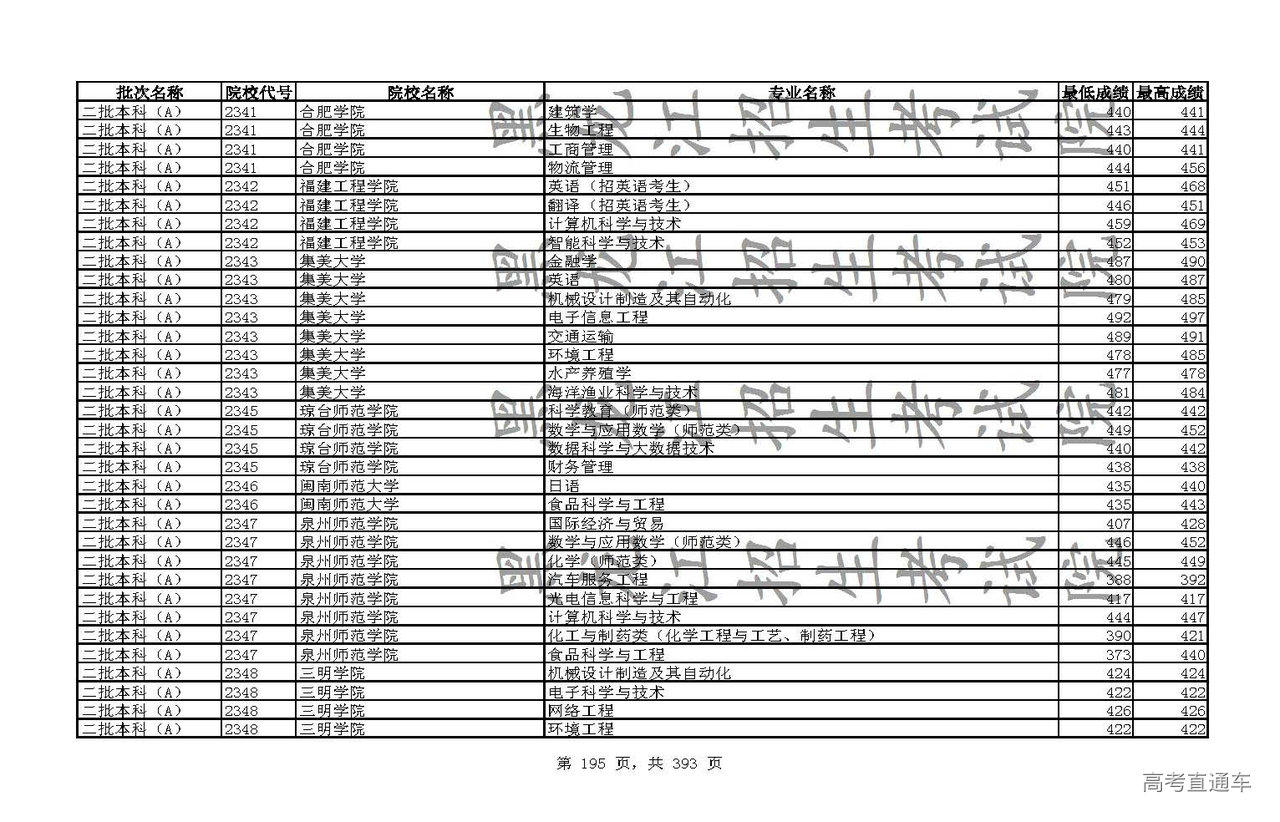 批次名称 院校代号 院校名称 专业名称 最低成绩 最高成绩
二批本科（A） 2341 合肥学院 建筑学 440 441
二批本科（A） 2341 合肥学院 生物工程 443 444
二批本科（A） 2341 合肥学院 工商管理 440 441
二批本科（A） 2341 合肥学院 物流管理 444 456
二批本科（A） 2342 福建工程学院 英语（招英语考生） 451 468
二批本科（A） 2342 福建工程学院 翻译（招英语考生） 446 451
二批本科（A） 2342 福建工程学院 计算机科学与技术 459 469
二批本科（A） 2342 福建工程学院 智能科学与技术 452 453
二批本科（A） 2343 集美大学 金融学 487 490
二批本科（A） 2343 集美大学 英语 480 487
二批本科（A） 2343 集美大学 机械设计制造及其自动化 479 485
二批本科（A） 2343 集美大学 电子信息工程 492 497
二批本科（A） 2343 集美大学 交通运输 489 491
二批本科（A） 2343 集美大学 环境工程 478 485
二批本科（A） 2343 集美大学 水产养殖学 477 478
二批本科（A） 2343 集美大学 海洋渔业科学与技术 481 484
二批本科（A） 2345 琼台师范学院 科学教育（师范类） 442 442
二批本科（A） 2345 琼台师范学院 数学与应用数学（师范类） 449 452
二批本科（A） 2345 琼台师范学院 数据科学与大数据技术 440 442
二批本科（A） 2345 琼台师范学院 财务管理 438 438
二批本科（A） 2346 闽南师范大学 日语 435 440
二批本科（A） 2346 闽南师范大学 食品科学与工程 435 443
二批本科（A） 2347 泉州师范学院 国际经济与贸易 407 428
二批本科（A） 2347 泉州师范学院 数学与应用数学（师范类） 446 452
二批本科（A） 2347 泉州师范学院 化学（师范类） 445 449
二批本科（A） 2347 泉州师范学院 汽车服务工程 388 392
二批本科（A） 2347 泉州师范学院 光电信息科学与工程 417 417
二批本科（A） 2347 泉州师范学院 计算机科学与技术 444 447
二批本科（A） 2347 泉州师范学院 化工与制药类（化学工程与工艺、制药工程） 390 421
二批本科（A） 2347 泉州师范学院 食品科学与工程 373 440
二批本科（A） 2348 三明学院 机械设计制造及其自动化 424 424
二批本科（A） 2348 三明学院 电子科学与技术 422 422
二批本科（A） 2348 三明学院 网络工程 426 426
二批本科（A） 2348 三明学院 环境工程 422 422
黑龙江招生考试院
黑龙江招生考试院
黑龙江招生考试院
黑龙江招生考试院
第 195 页，共 393 页
高考直通车